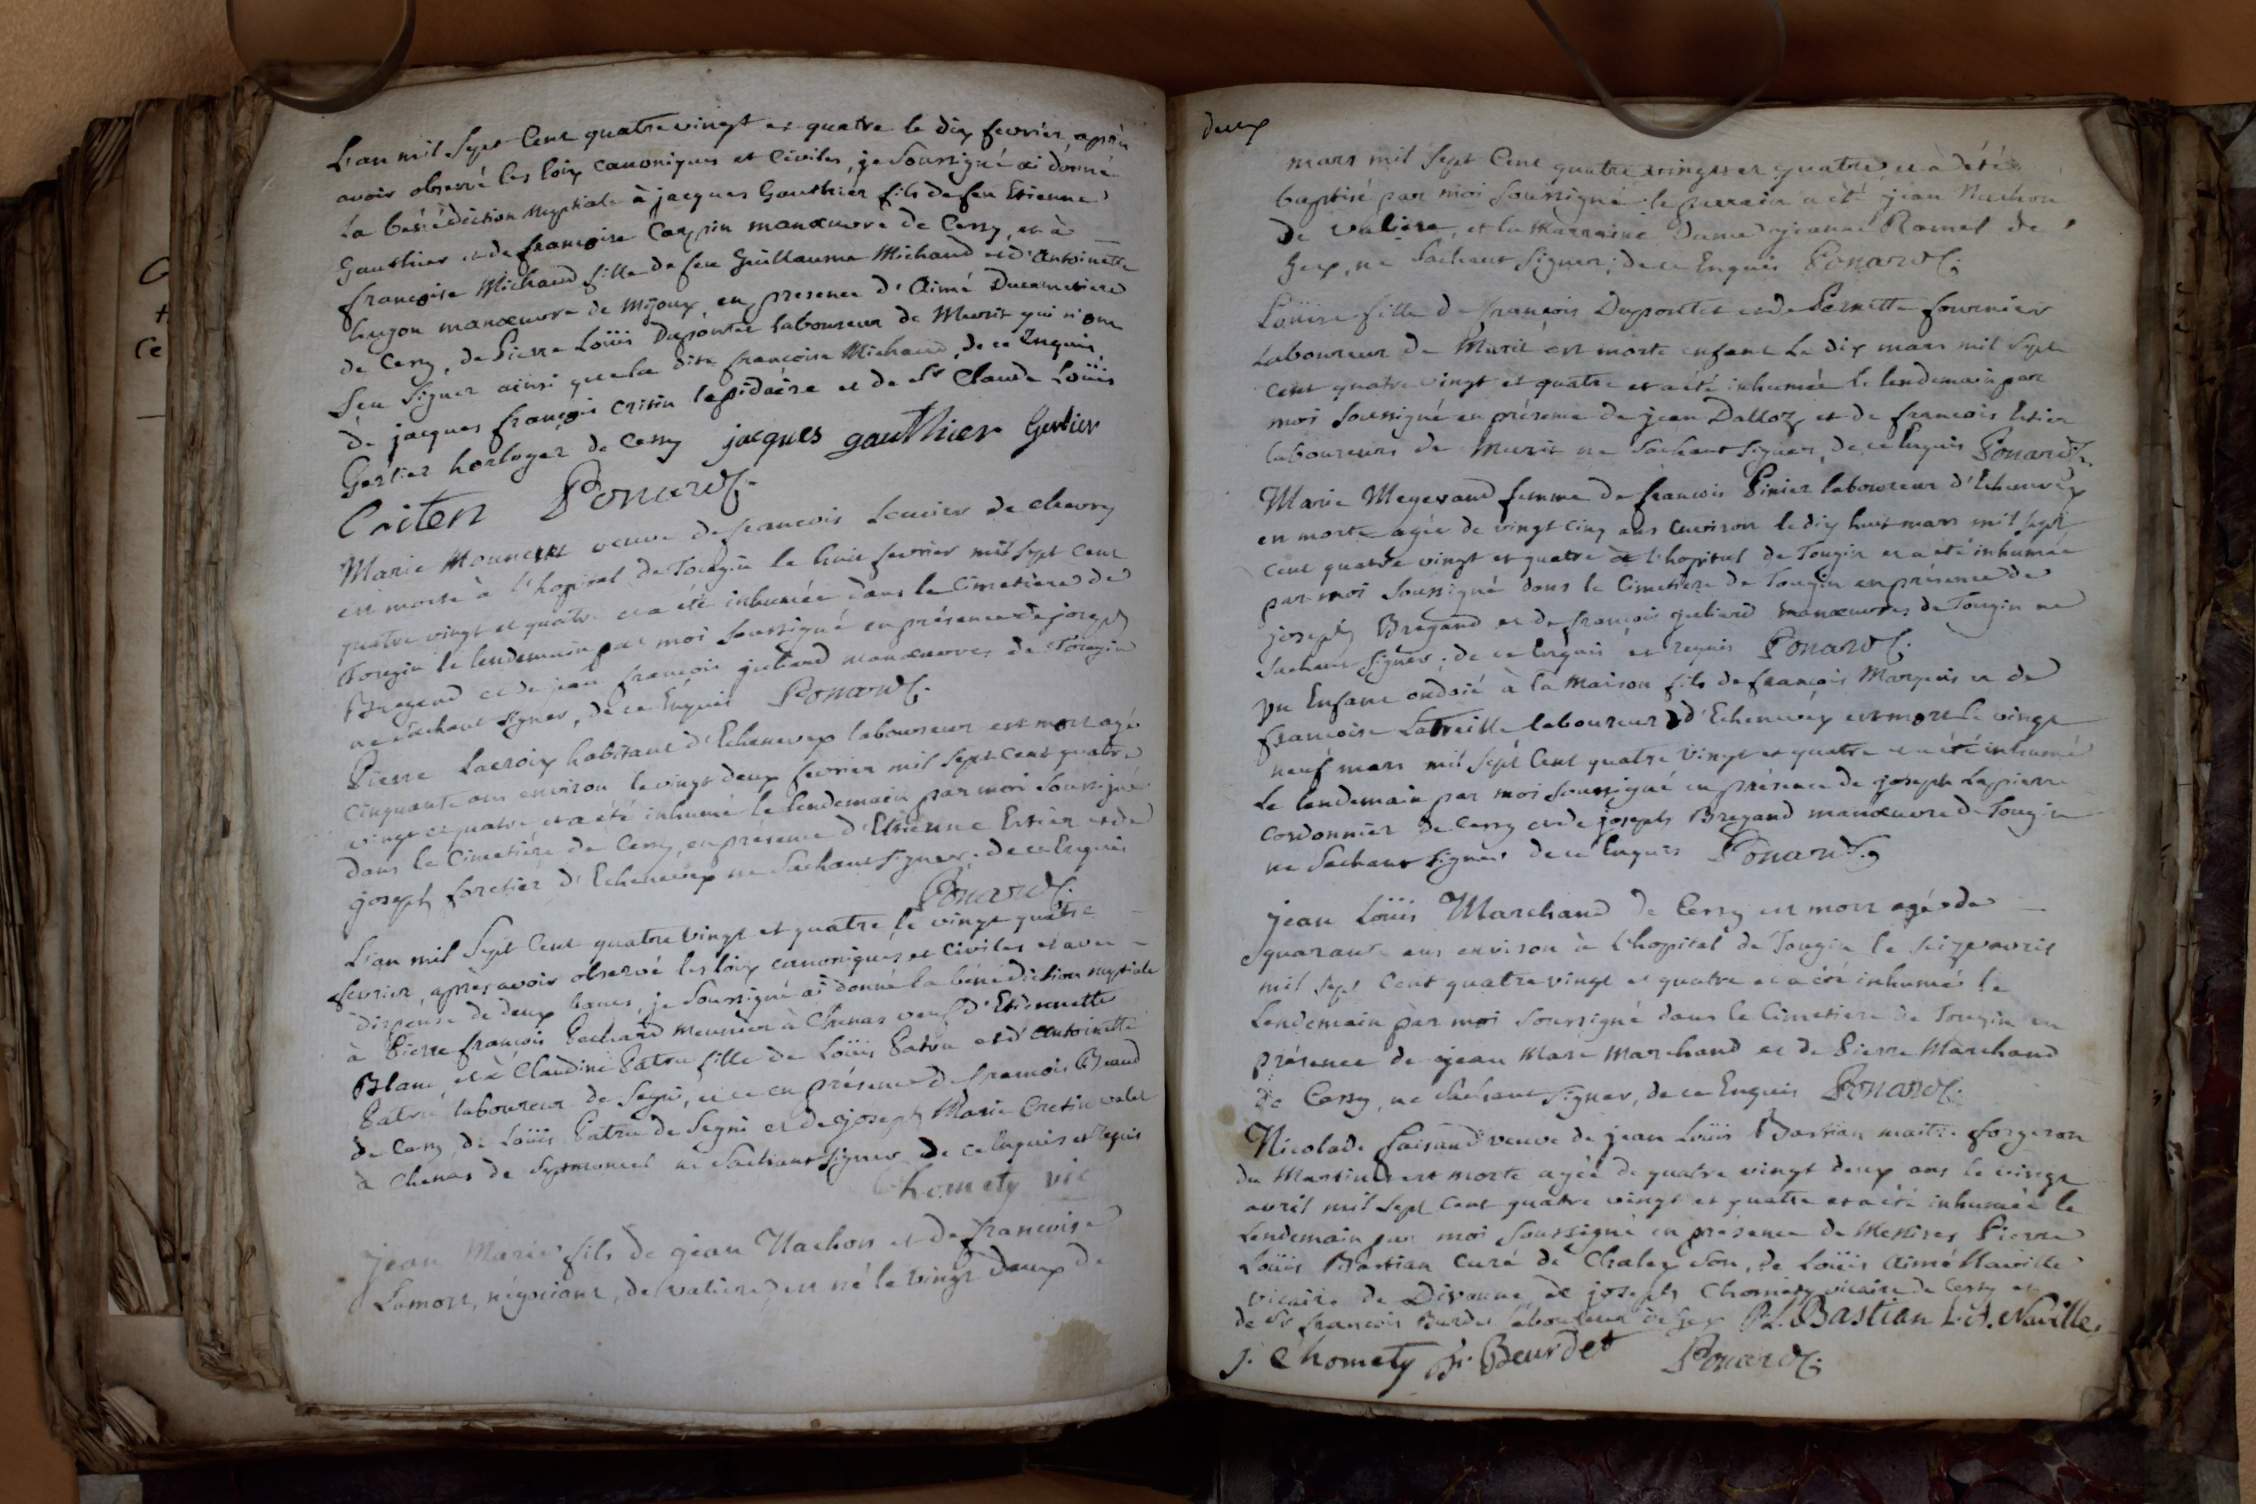 L'an mil Sept Cent quatre vingt et quatre le dix fevrier, après
avoir observé les loix canoniques et Civiles, je Soussigné ai donné
la bénédiction nuptiale à jacques Gauthier fils de feu Etienne
Gauthier et de françoise manœuvre de Cessy, et à
françoise Michaud fille de feu Guillaume Michaud et d'Antoinette
manœuvre de Mijoux, en presence d'Aimé Ducimetiere
de Cessy, de Pierre Loüis Duportet laboureur de Murit qui n'ont
Seu Signer ainsi que la dite françoise Michaud, de ce Enquis,
de jacques françois lapidaire et de Sr Claude Loüis
Gertier horloger de Cessy jacques gauthier Gertier
Ponard C.
Marie veuve de francois de chevry
est morte à l'hopital de Tougin le huit fevrier mil sept cent
quatre vingt et quatre et a été inhumée dans le Cimetière de
Tougin le lendemain par moi Soussigné en présence de joseph
Bregand et de jean françois juliand manœuvres de Tougin
ne Sachant Signer, de ce Enquis Ponard C.
Pierre Lacroix habitant d'Echenevex laboureur est mort agé
Cinquante ans environ le vingt deux fevrier mil Sept Cent quatre
vingt et quatre et a été inhumé le lendemain par moi Soussigné
dans le Cimetière de Cessy, en présence d'Etienne et de
joseph foretier d'Echenevex ne Sachant Signer, de ce Enquis
Ponard C.
L'an mil Sept Cent quatre vingt et quatre le vingt quatre
fevrier, après avoir observé les loix canoniques et Civiles et avec
dispense de deux bancs, je Soussigné ai donné la bénédiction nuptiale
à Pierre françois meunier à Chenas veuf d'Etiennette
Blanc, et à Claudine Patru fille de Loüis Patru et d'Antoinette
Patru laboureur de Segni, et ce en présence de francois
de Cessy, de Loüis Patru de Segni et de joseph Marie Cretin valet
à Chenas de Septmoncel ne Sachant Signer de ce Enquis et Requis
Chomety vic
jean Marie fils de jean Nachon et de françoise
Lamort, négociant, de valiere, est né le vingt deux de
deux
mars mil Sept Cent quatre vingt et quatre et a été
baptisé par moi Soussigné le parrain a été jean Nachon
de Valiere, et la Marraine Dame jeanne Ramel de
Gex, ne Sachant Signer, de ce Enquis Ponard C.
Loüise fille de francois Duportet et de Pernette fournier
Laboureur de Murit est morte enfant le dix mars mil Sept
Cent quatre vingt et quatre et a été inhumée le lendemain par
moi Soussigné en présence de jean Dalloz et de francois
laboureurs de Murit ne Sachant Signer, de ce Enquis Ponard C.
Marie Megevand femme de francois Pinier laboureur d'Echenevex
est morte agée de vingt cinq ans environ le dix huit mars mil Sept
Cent quatre vingt et quatre à l'hopital de Tougin et a été inhumée
par moi Soussigné dans le Cimetiere de Tougin en présence de
joseph Bregand et de francois juliand manœuvres de Tougin ne
Sachant Signer, de ce Enquis et Requis Ponard C.
Un Enfant ondoié à la Maison fils de françois Marquis et de
françoise Latreille laboureur d'Echenevex est mort le vingt
neuf mars mil Sept Cent quatre vingt et quatre et a été inhumé
Le lendemain par moi Soussigné en présence de joseph Lapierre
Cordonnier de Cessy et de joseph Bregand manœuvre de Tougin
ne Sachant Signer de ce Enquis Ponard C.
jean Loüis Marchand de Cessy est mort agé de
quarante ans environ à l'hopital de Tougin le Seize avril
mil Sept Cent quatre vingt et quatre et a été inhumé le
Lendemain par moi Soussigné dans le Cimetiere de Tougin en
présence de jean Marc Marchand et de Pierre Marchand
de Cessy, ne Sachant Signer, de ce Enquis Ponard C.
Nicolade veuve de jean Loüis Bastian maitre forgeron
du Martinet est morte agée de quatre vingt deux ans le vingt
avril mil Sept Cent quatre vingt et quatre et a été inhumée le
Lendemain par moi Soussigné en présence de Messires Pierre
Loüis Bastian Curé de Chalex Son, de Loüis Aimé Naville
vicaire de Divonne, de joseph Chomety vicaire de Cessy et
de Sr francois Burdet laboureur de Gex P.L. Bastian L.A. Naville
j. Chomety fr. Beurdet Ponard C.